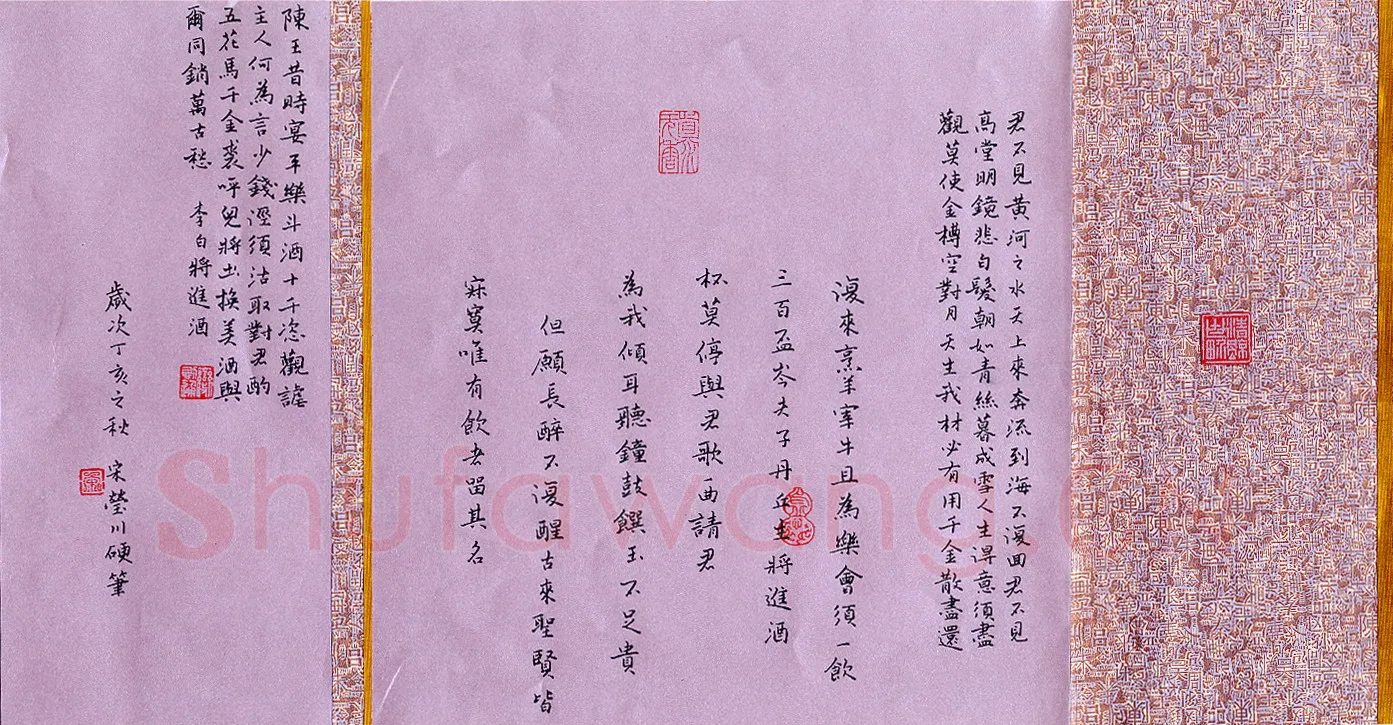 君不見黄河之水天上來奔流到海不復回君不見
高堂明鏡悲白髮朝如青絲暮成雪人生得意須盡
觀莫使金樽空對月天生我材必有用千金散盡還
復來烹羊宰牛且為樂會須一飲
三百盃岑夫子丹丘生將進酒
杯莫停與君歌一曲請君
為我傾耳聽鐘鼓饌玉不足貴
但願長醉不復醒古來聖賢皆
寂寞唯有飲者留其名
陳王昔時宴平樂斗酒十千恣觀謔
主人何為言少錢徑須沽取對君酌
五花馬千金裘呼兒將出換美酒與
爾同銷萬古愁 李白將進酒
歲次丁亥之秋 宋瑩川硬筆
Shufawang.c